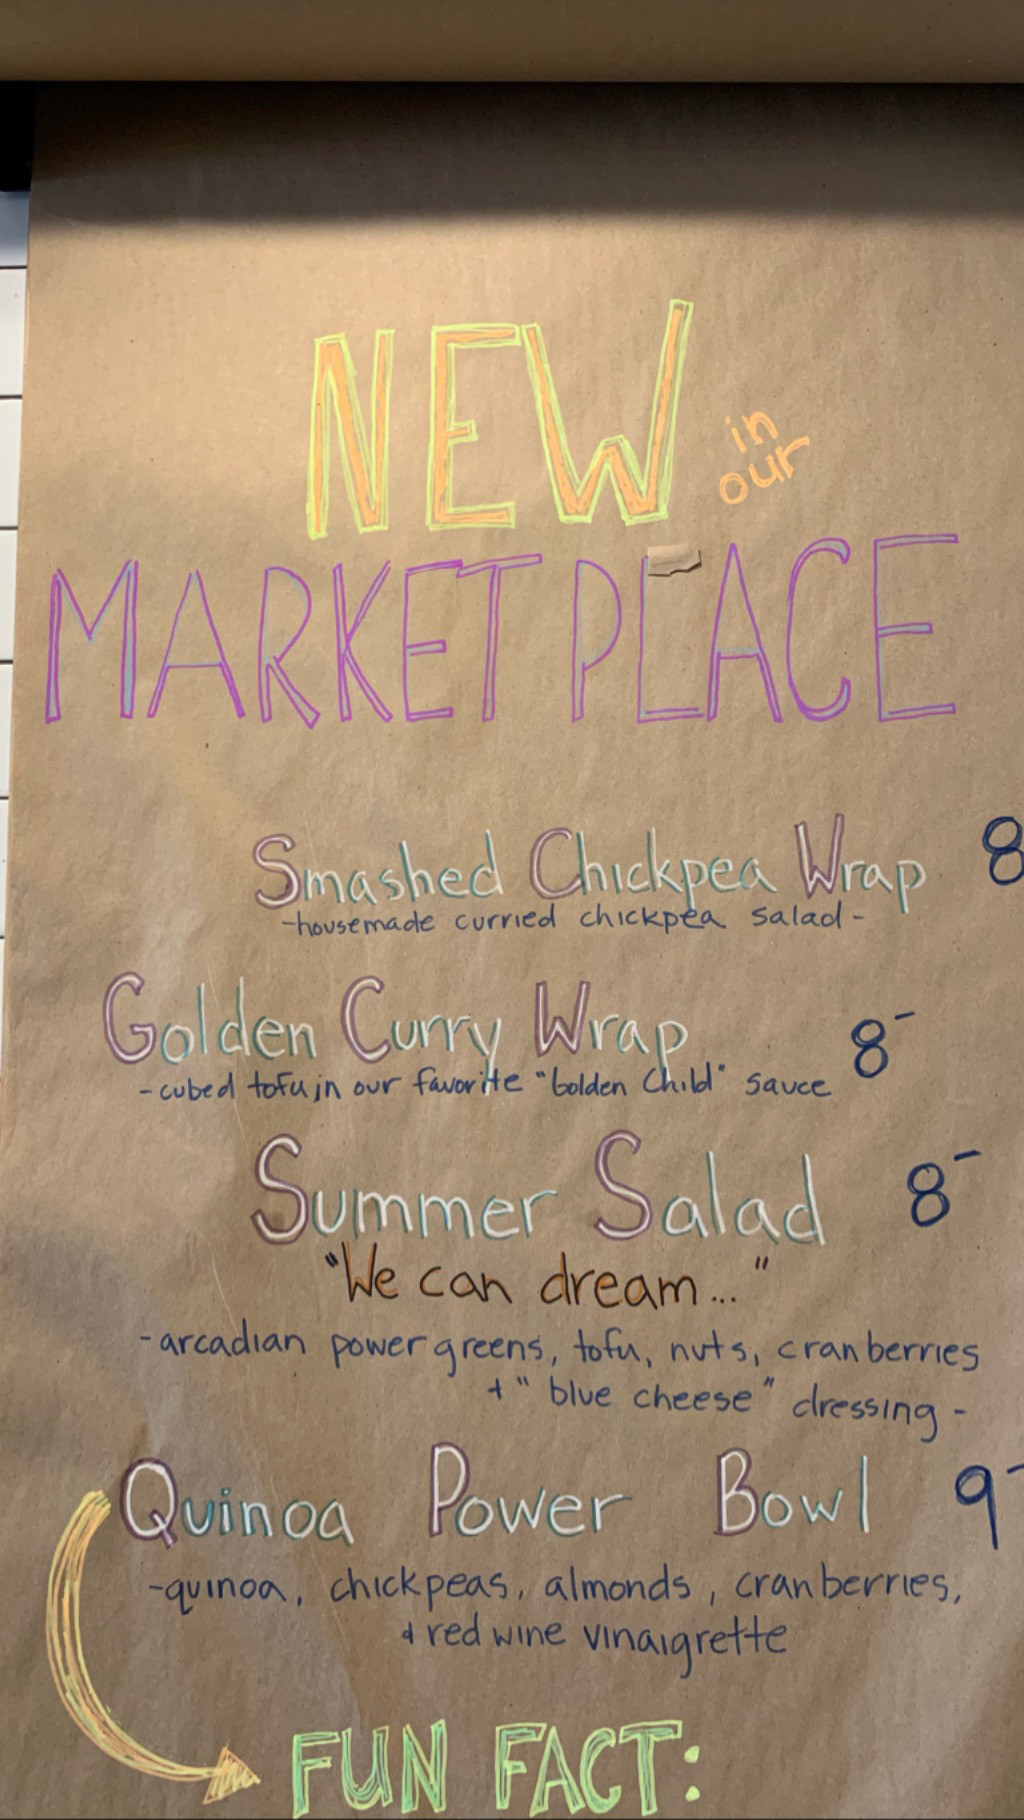 NEW in
our
MARKETPLACE
Smashed Chickpea Wrap 8
-housemade curried chickpea salad-
Golden Curry Wrap 8-
-cubed tofu in our favorite "Golden Child" sauce
Summer Salad 8-
"We can dream..."
-arcadian power greens, tofu, nuts, cranberries
+ "blue cheese" dressing-
Quinoa Power Bowl 9-
-quinoa, chickpeas, almonds, cranberries,
& red wine vinaigrette
FUN FACT: